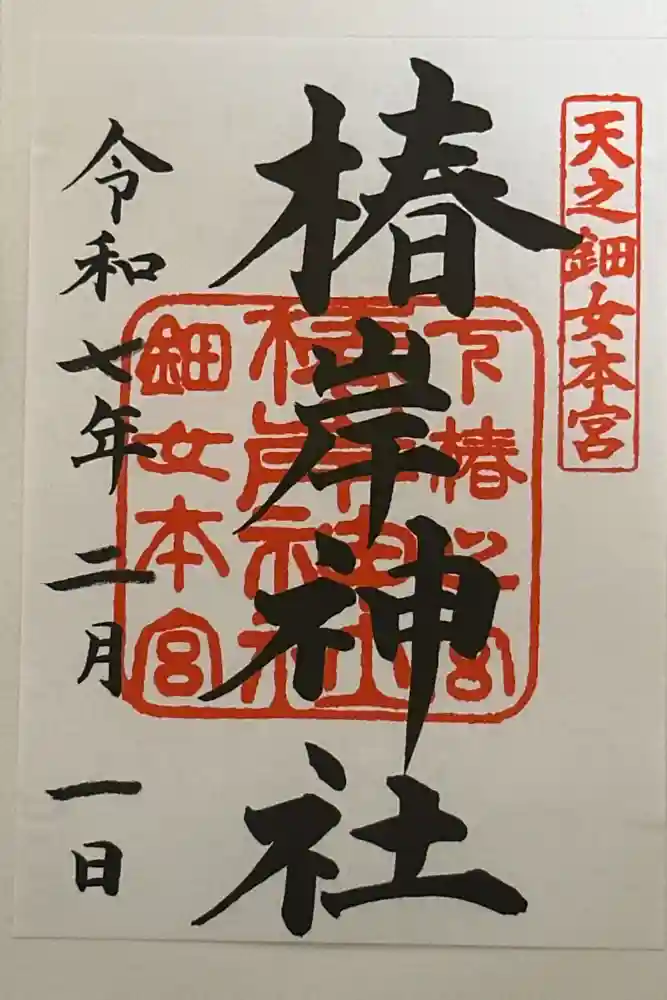 天之鈿女本宮
椿岸神社
下椿之宮
椿岸神社
鈿女本宮
令和七年二月一日